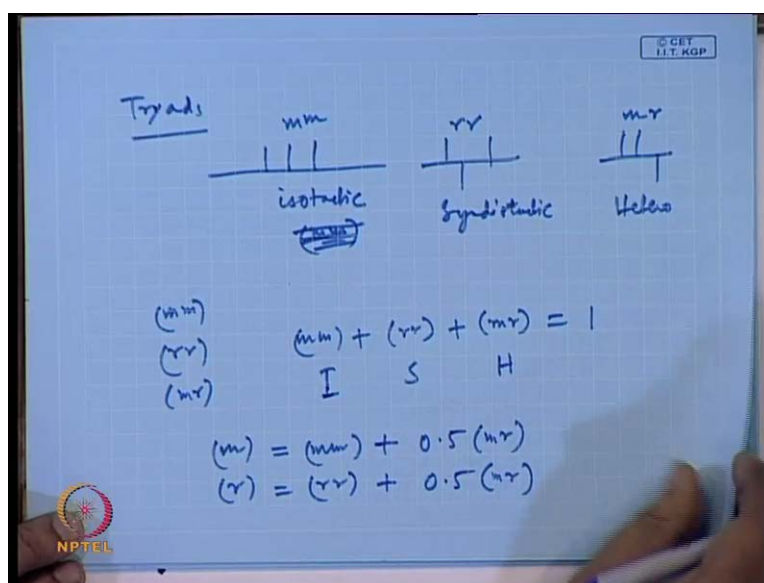 © CET
I.I.T. KGP
Tryads
mm rr mr
isotactic Syndiotactic Hetero
(mm)
(rr)
(mr)
(mm) + (rr) + (mr) = 1
I S H
(m) = (mm) + 0.5 (mr)
(r) = (rr) + 0.5 (mr)
NPTEL